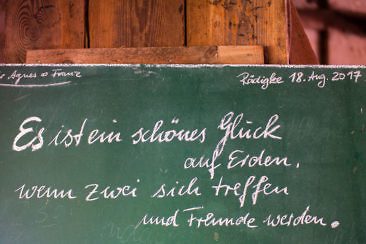 Agnes & Franz
Rädigke 18. Aug. 2017
Es ist ein schönes Glück
auf Erden,
wenn zwei sich treffen
und Freunde werden.